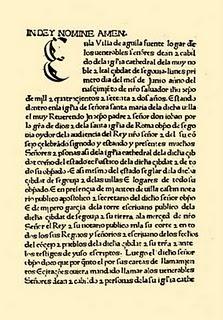 IN DEY NOMINE AMEN.
Enla Villa de aguila fuente logar de
los uenerables señores dean & cabil
do dela iglesia cathedral dela muy no
ble & leal cibdat de segouia. lunes pri
mero dia del mes de junio año del
nascimjento de nro saluador ihu xpo
de mjll & quatrocientos & setenta & dos años. Estando
dentro enla iglesia de señora santa maria dela dicha ui
lla el muy Reuerendo jn xpo padre & señor don iohan por
la gracia de dios & dela santa iglesia de Roma obpo de sego
uia oydor dela audiencia del Rey nro señor & del su co
sejo celebrando signodo y estando y presentes muchos
Señores & personas asi dela iglesia cathedral dela dicha cib
dat como del estado eclesiastico dela dicha cibdat & de to
do su obispado. E asi mesmo del estado seglar dela dicha
cibdat de segouia & delas uillas E logares de todo su
obispado E en presencia de mj anton de uilla castin nota
rio publico apostolico & secretario del dicho señor obpo
E de mi pero garcia dela torre escriuano publico dela
dicha cibdat de segouia & su tierra ala merced de nro
Señor el Rey & su notario publico enla su corte & en to
dos los sus Regnos y señorios & escriuano delos fechos
del concejo & pueblos dela dicha cibdat & su tierra & ante
los testigos de yuso escriptos. Luego el dicho señor
obpo dixo que por quanto el por sus cartas de llamamien
tos E citaciones ouiera mandado llamar alos uenerables
Señores dean & cabildo & personas dela su iglesia cathe